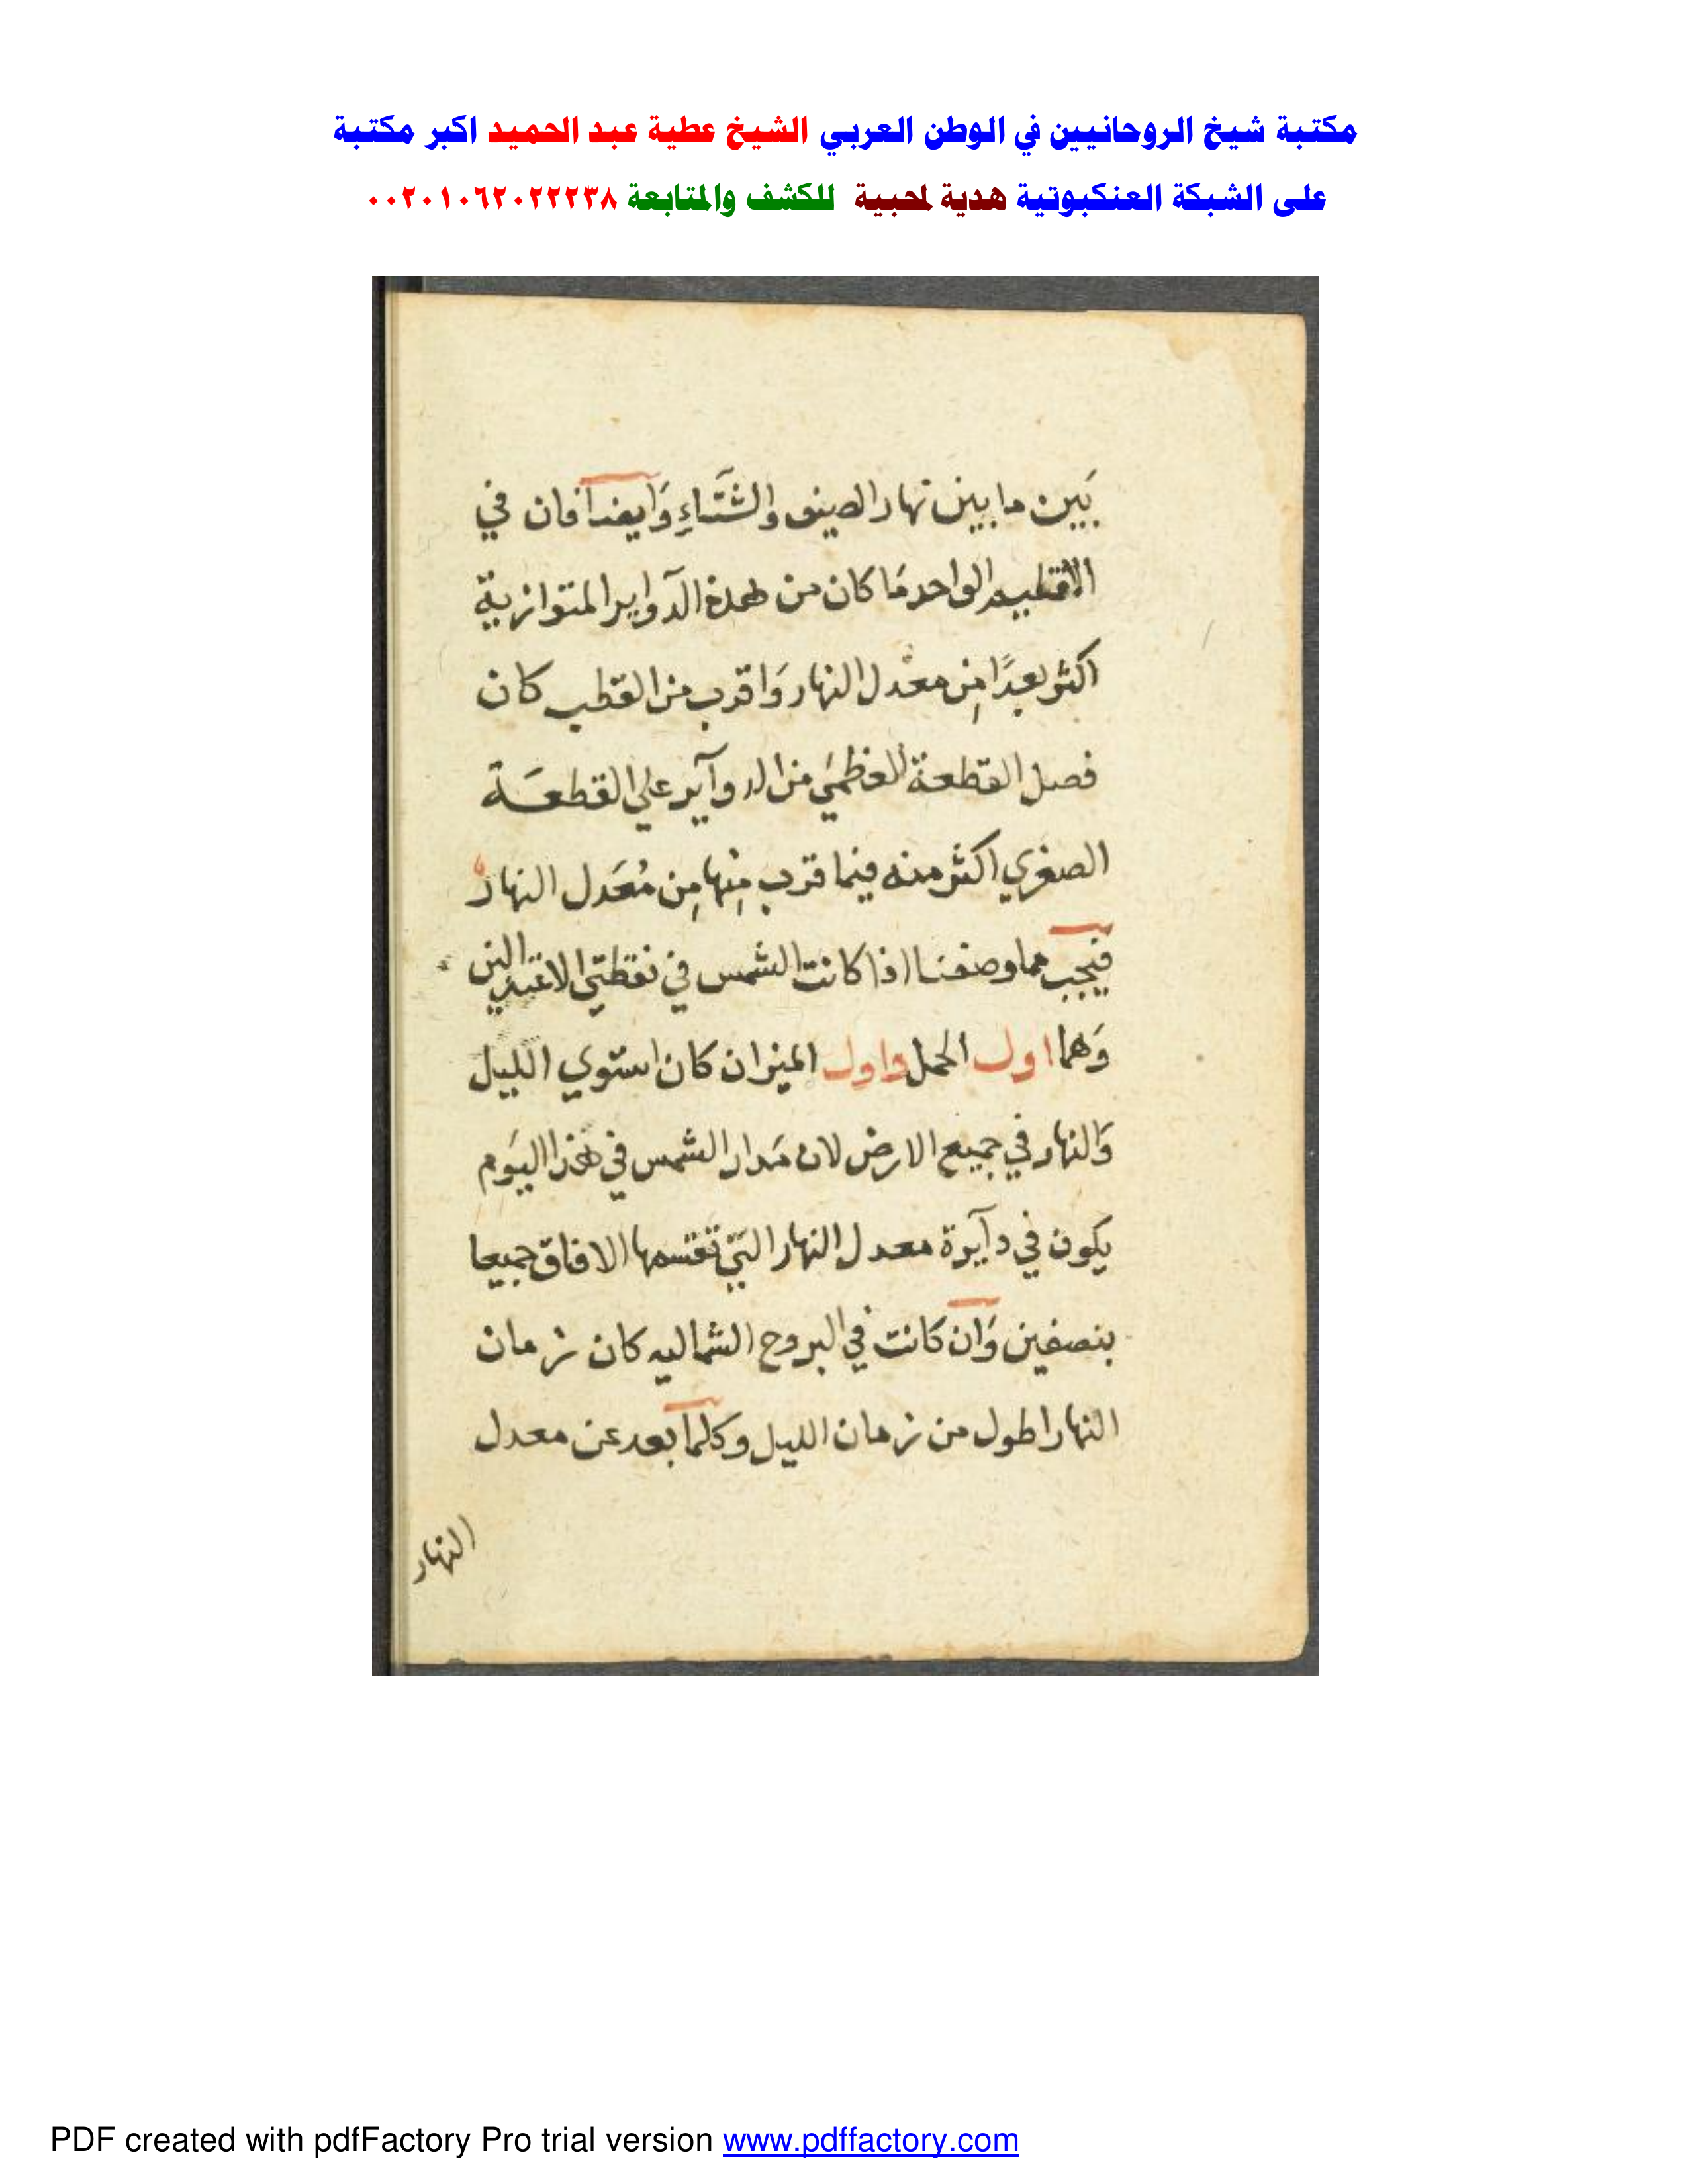 مكتبة شيخ الروحانيين في الوطن العربي الشيخ عطية عبد الحميد اكبر مكتبة
على الشبكة العنكبوتية هدية لمحبية للكشف والمتابعة ٠٠٢٠١٠٦٢٠٢٢٢٣٨
بَين ما بين نهار الصيف والشتَّاءِ وَايضا فان في
الاقليم الواحد مَا كان من هذه الدوآير المتوازية
اكثر بعدًا مِن معدل النهار وَاقرب من القطب كان
فصل القطعة العظمَي من الدوآير علي القطعَة
الصغري اكثر منه فيما قرب مِنها مِن مُعَدل النهار
فيجب مما وصفنا اذا كانت الشمس في نقطتي الاعتدالين
وَهما اول الحمل واول الميزان كان استوي الليل
وَالنهار في جميع الارض لان مَدار الشمس في هَذا اليَوم
يكون في دآيرة معدل النهار التي تقسمها الافاق جميعا
بنصفين وَان كانت في البروج الشماليه كان زمان
النهار اطول من زمان الليل وكلما بعد عن معدل
النهار
PDF created with pdfFactory Pro trial version www.pdffactory.com